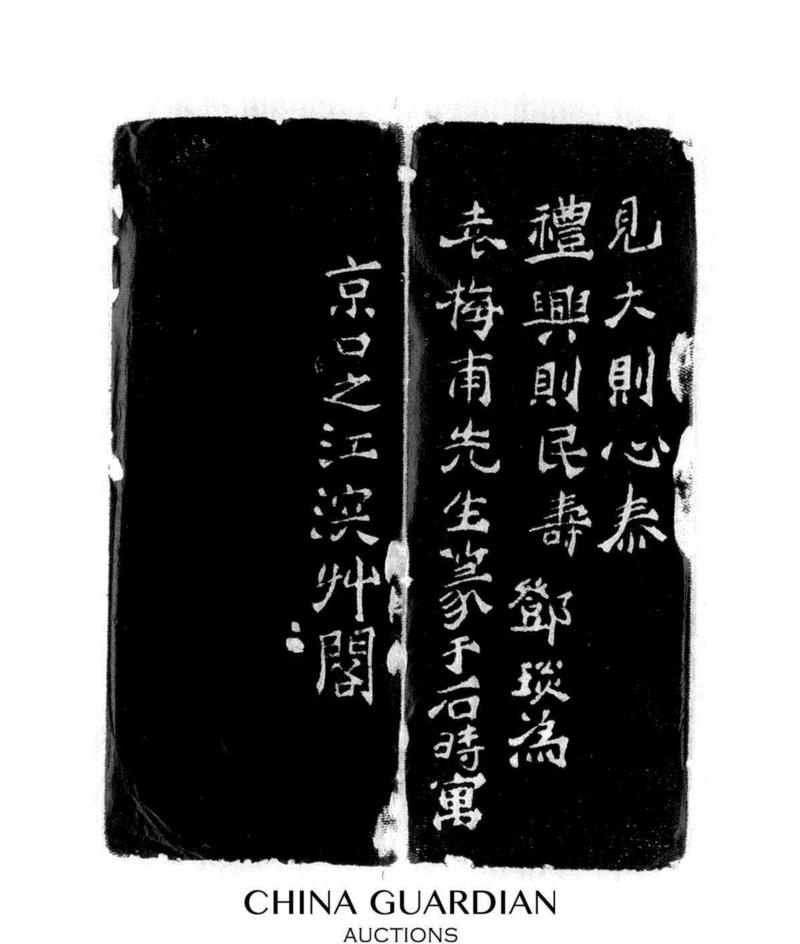 見大則心泰
禮興則民壽 鄧琰為
袁梅甫先生篆于石時寓
京口之江滨艸閣
CHINA GUARDIAN
AUCTIONS